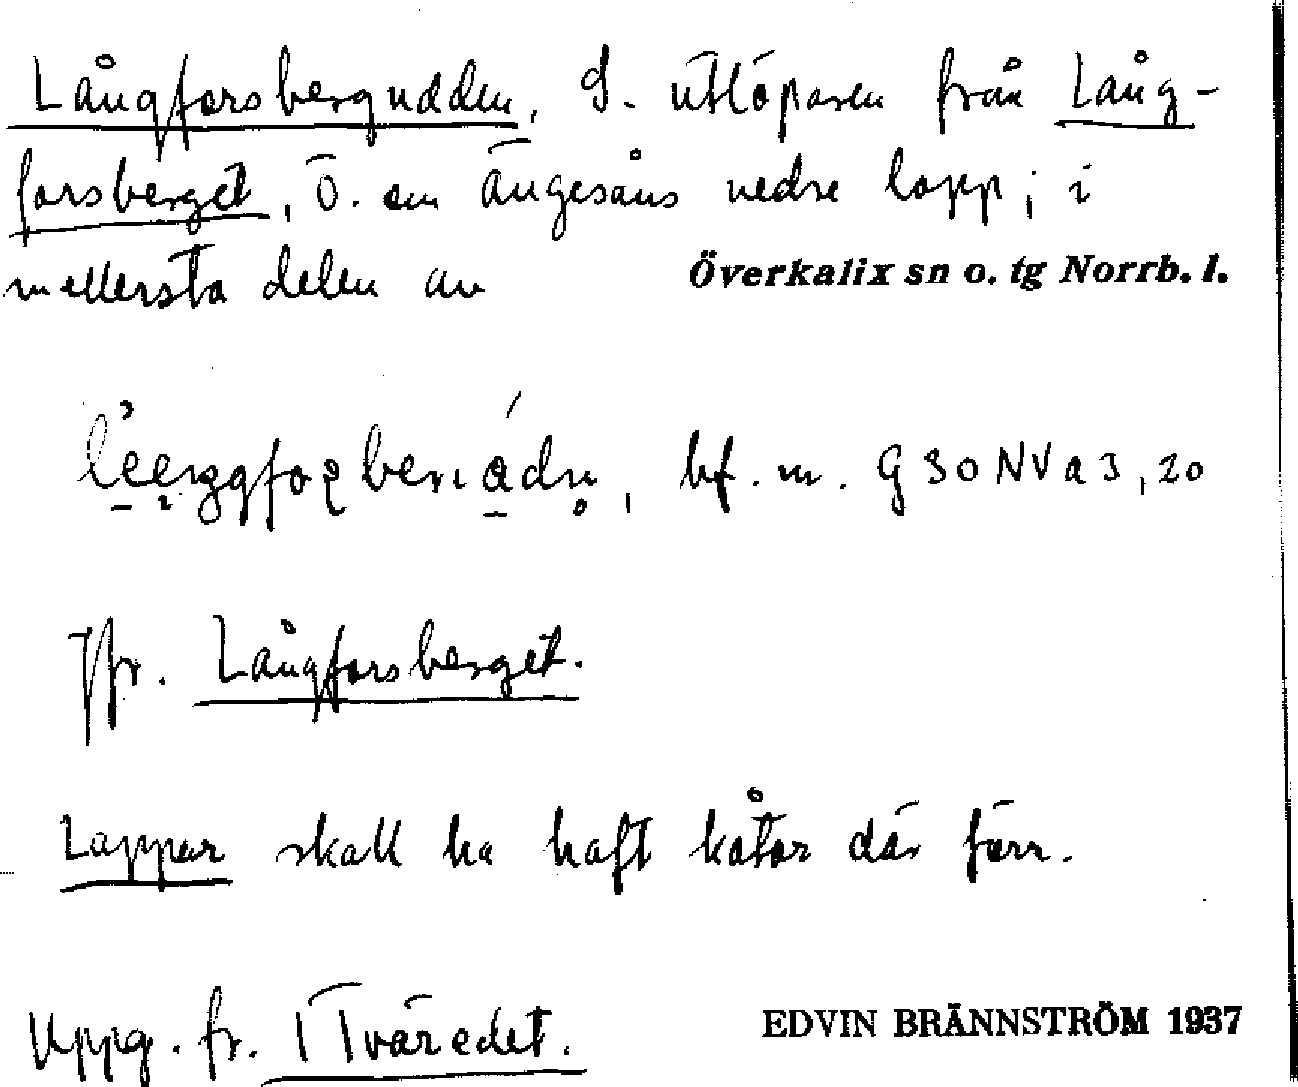 Långforsbergudden, S. utlöparen från Lång-
forsberget, Ö. om Ängesåns nedre lopp; i
mellersta delen av Överkalix sn o. tg Norrb. l.
bf. m. G 30 NV a 3, 20
Jfr. Långforsberget.
Lappar skall ha haft kåtor där förr.
Uppg. fr. Tväredet.
EDVIN BRÄNNSTRÖM 1937